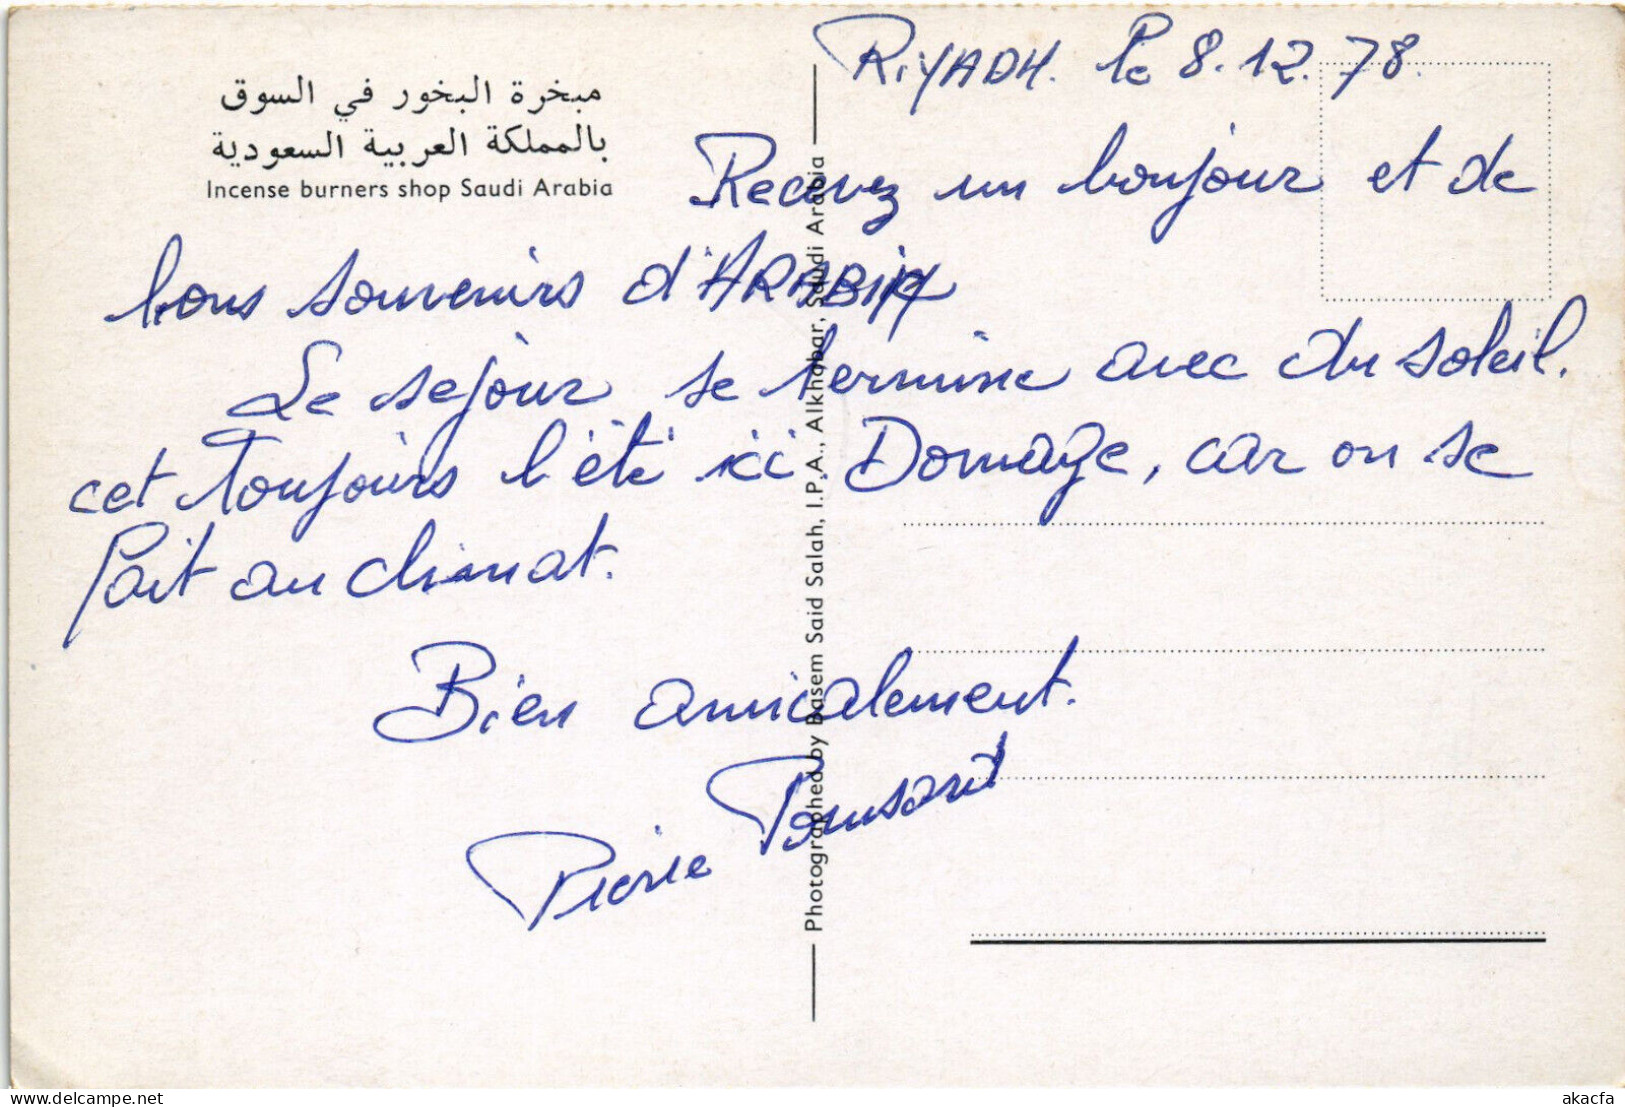 مبخرة البخور في السوق
بالمملكة العربية السعودية
Incense burners shop Saudi Arabia
Photographed by Basem Said Salah, I.P.A., Alkhobar, Saudi Arabia
RiYADH. le 8.12.78.
Recevez un bonjour et de
bons souvenirs d'ARABIA
Le sejour se termine avec du soleil.
cet toujours l'été ici. Domage, car on se
fait au climat.
Bien amicalement.
Pierre
akacfa.net
akacfa